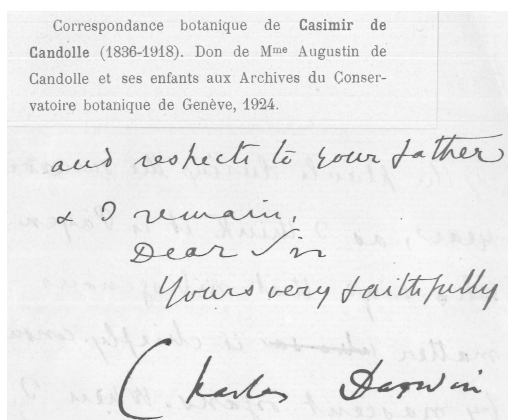 Correspondance botanique de Casimir de
Candolle (1836-1918). Don de Mme Augustin de
Candolle et ses enfants aux Archives du Conser-
vatoire botanique de Genève, 1924.
and respects to your father
& I remain,
Dear Sir
Yours very faithfully
Charles Darwin